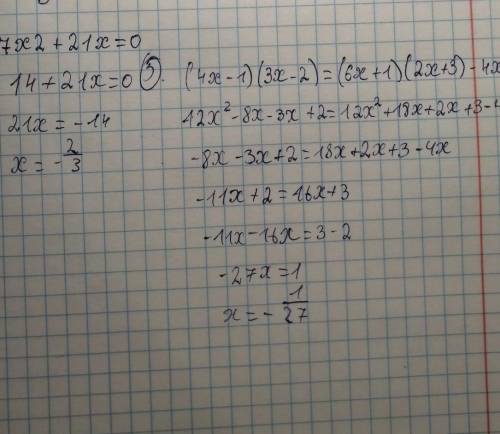 7x2+21x=0
14+21x=0
21x=-14
x=-2/3
5. (4x-1)(3x-2)=(6x+1)(2x+3)-4x
12x²-8x-3x+2=12x²+18x+2x+3-4
-8x-3x+2=18x+2x+3-4x
-11x+2=16x+3
-11x-16x=3-2
-27x=1
x=-1/27